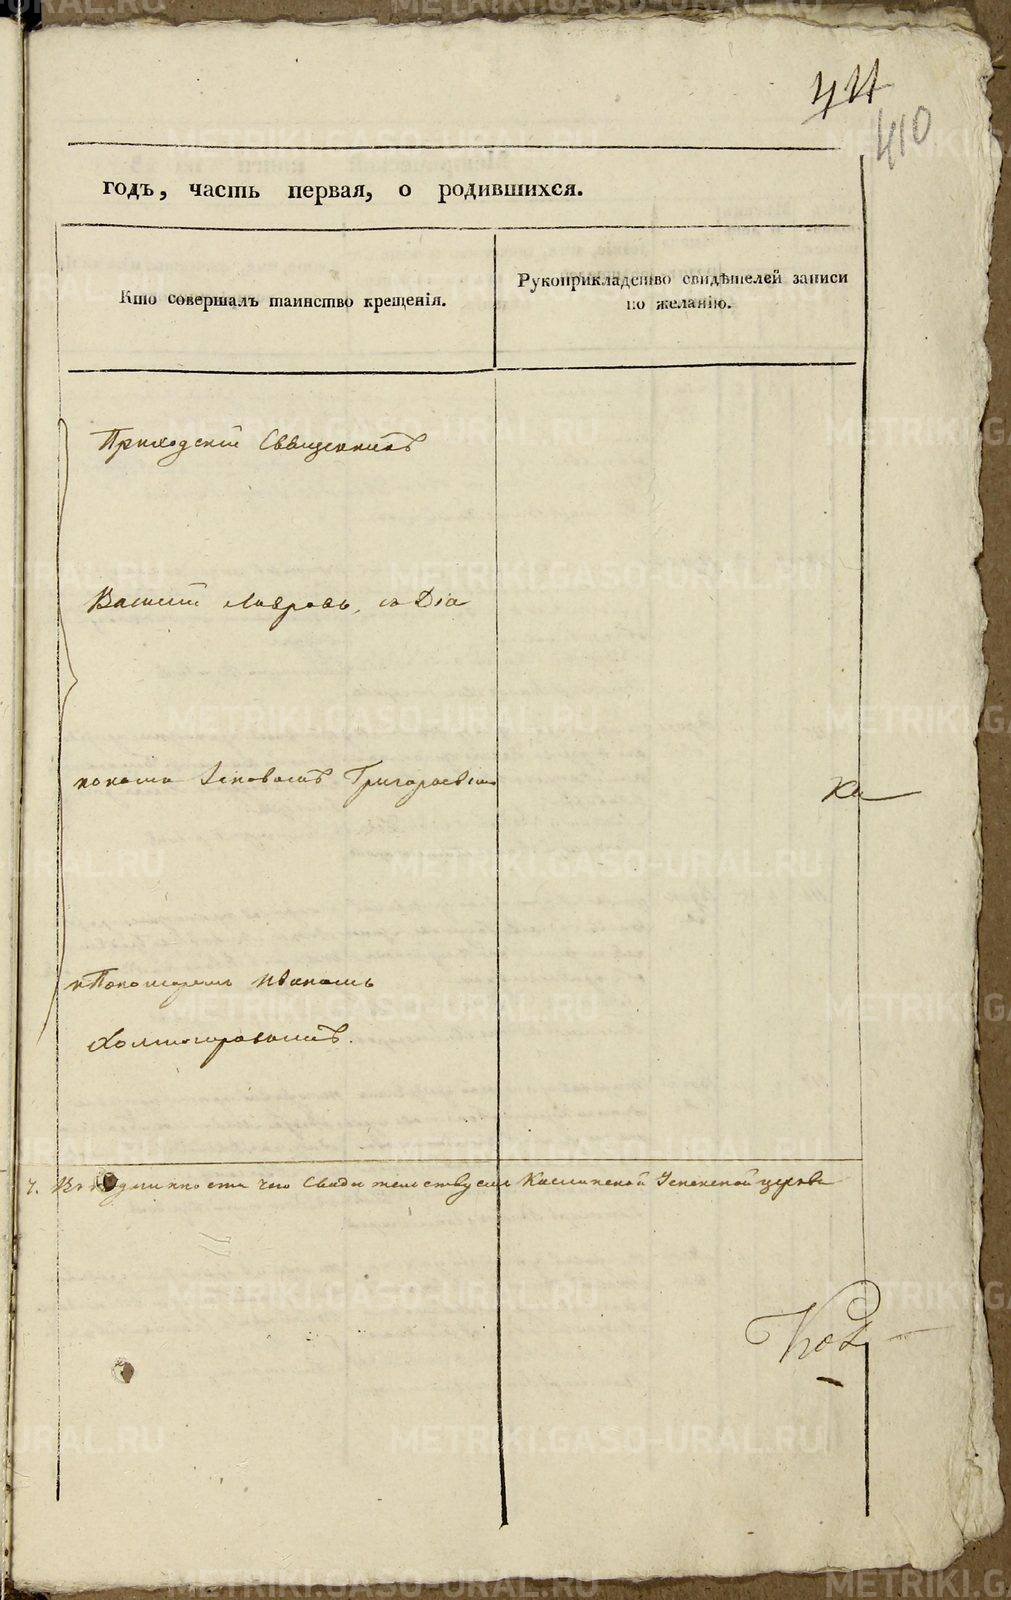 411
410
годъ, часть первая, о родившихся.
Кто совершалъ таинство крещенія.
Рукоприкладство свидѣтелей записи по желанію.
Приходскій Священникъ
Василій Лавровъ, съ Діа
кономъ Іаковомъ Григорьевымъ
Ка
и Пономаремъ Иваномъ
Холмогоровымъ.
Въ подлинности чего Свидѣтельствуемъ Каслинской Успенской церкви
METRIKI.GASO-URAL.RU